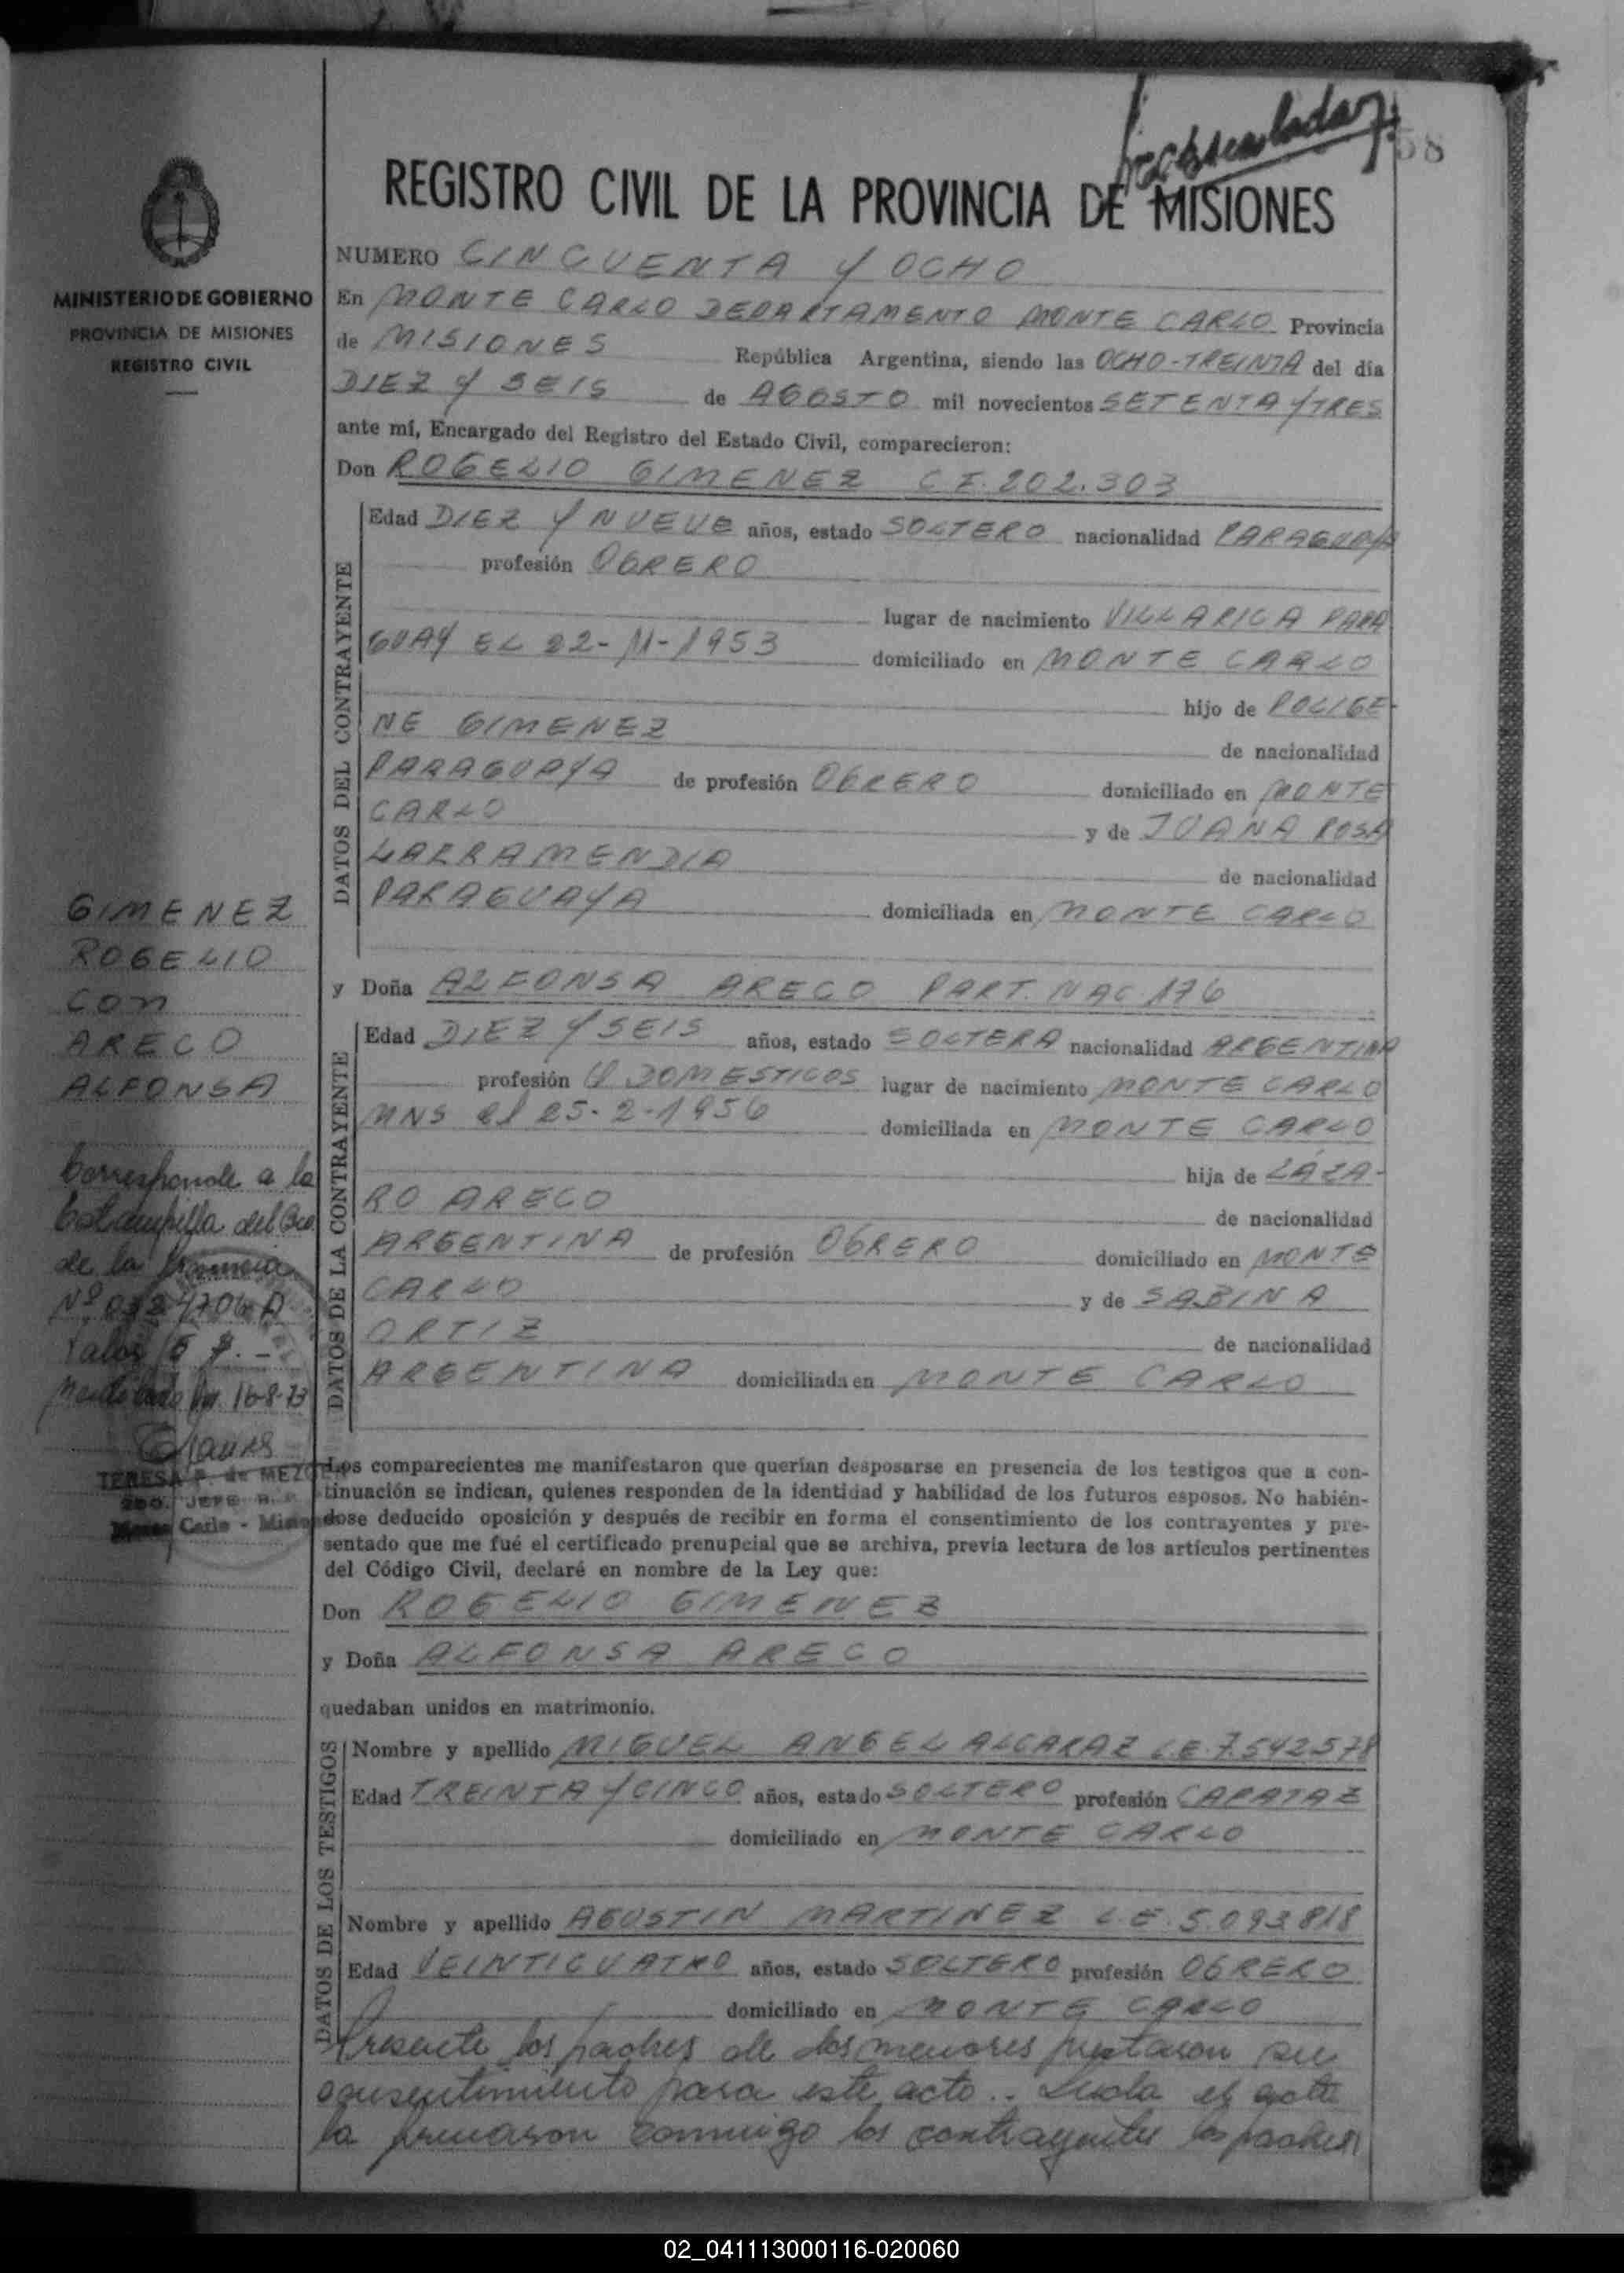 58
REGISTRO CIVIL DE LA PROVINCIA DE MISIONES
MINISTERIO DE GOBIERNO
PROVINCIA DE MISIONES
REGISTRO CIVIL
NUMERO CINCUENTA Y OCHO
En MONTE CARLO DEPARTAMENTO MONTE CARLO Provincia
de MISIONES República Argentina, siendo las OCHO-TREINTA del día
DIEZ Y SEIS de AGOSTO mil novecientos SETENTA Y TRES
ante mí, Encargado del Registro del Estado Civil, comparecieron:
Don ROGELIO GIMENEZ C I. 202.303
DATOS DEL CONTRAYENTE
Edad DIEZ Y NUEVE años, estado SOLTERO nacionalidad PARAGUAYA
profesión OBRERO
lugar de nacimiento VILLARICA PARA
GUAY EL 22-11-1953 domiciliado en MONTE CARLO
hijo de POLIGE-
NE GIMENEZ de nacionalidad
PARAGUAYA de profesión OBRERO domiciliado en MONTE
CARLO y de JUANA ROSA
LARRAMENDIA de nacionalidad
PARAGUAYA domiciliada en MONTE CARLO
GIMENEZ
ROGELIO
CON
ARECO
ALFONSA
y Doña ALFONSA ARECO PART. NAC 176
DATOS DE LA CONTRAYENTE
Edad DIEZ Y SEIS años, estado SOLTERA nacionalidad ARGENTINA
profesión Q DOMESTICOS lugar de nacimiento MONTE CARLO
MNS el 25-2-1956 domiciliada en MONTE CARLO
hija de LÁZA-
RO ARECO de nacionalidad
ARGENTINA de profesión OBRERO domiciliado en MONTE
CARLO y de SABINA
ORTIZ de nacionalidad
ARGENTINA domiciliada en MONTE CARLO
Corresponde a la
Estampilla del
de la Provincia
Nº
Valor
16-8-73
TERESA P. de
JEFE R. P.
Carlo - Misio
Los comparecientes me manifestaron que querían desposarse en presencia de los testigos que a con-
tinuación se indican, quienes responden de la identidad y habilidad de los futuros esposos. No habién-
dose deducido oposición y después de recibir en forma el consentimiento de los contrayentes y pre-
sentado que me fué el certificado prenupcial que se archiva, previa lectura de los artículos pertinentes
del Código Civil, declaré en nombre de la Ley que:
Don ROGELIO GIMENEZ
y Doña ALFONSA ARECO
quedaban unidos en matrimonio.
DATOS DE LOS TESTIGOS
Nombre y apellido MIGUEL ANGEL ALCARAZ L.E. 7.542578
Edad TREINTA Y CINCO años, estado SOLTERO profesión CAPATAZ
domiciliado en MONTE CARLO
Nombre y apellido AGUSTIN MARTINEZ L.E. 5.093818
Edad VEINTICUATRO años, estado SOLTERO profesión OBRERO
domiciliado en MONTE CARLO
Presente los padres de los menores prestaron su
consentimiento para este acto.. Leida el acta
la firmaron conmigo los contrayentes los padres
02_041113000116-020060